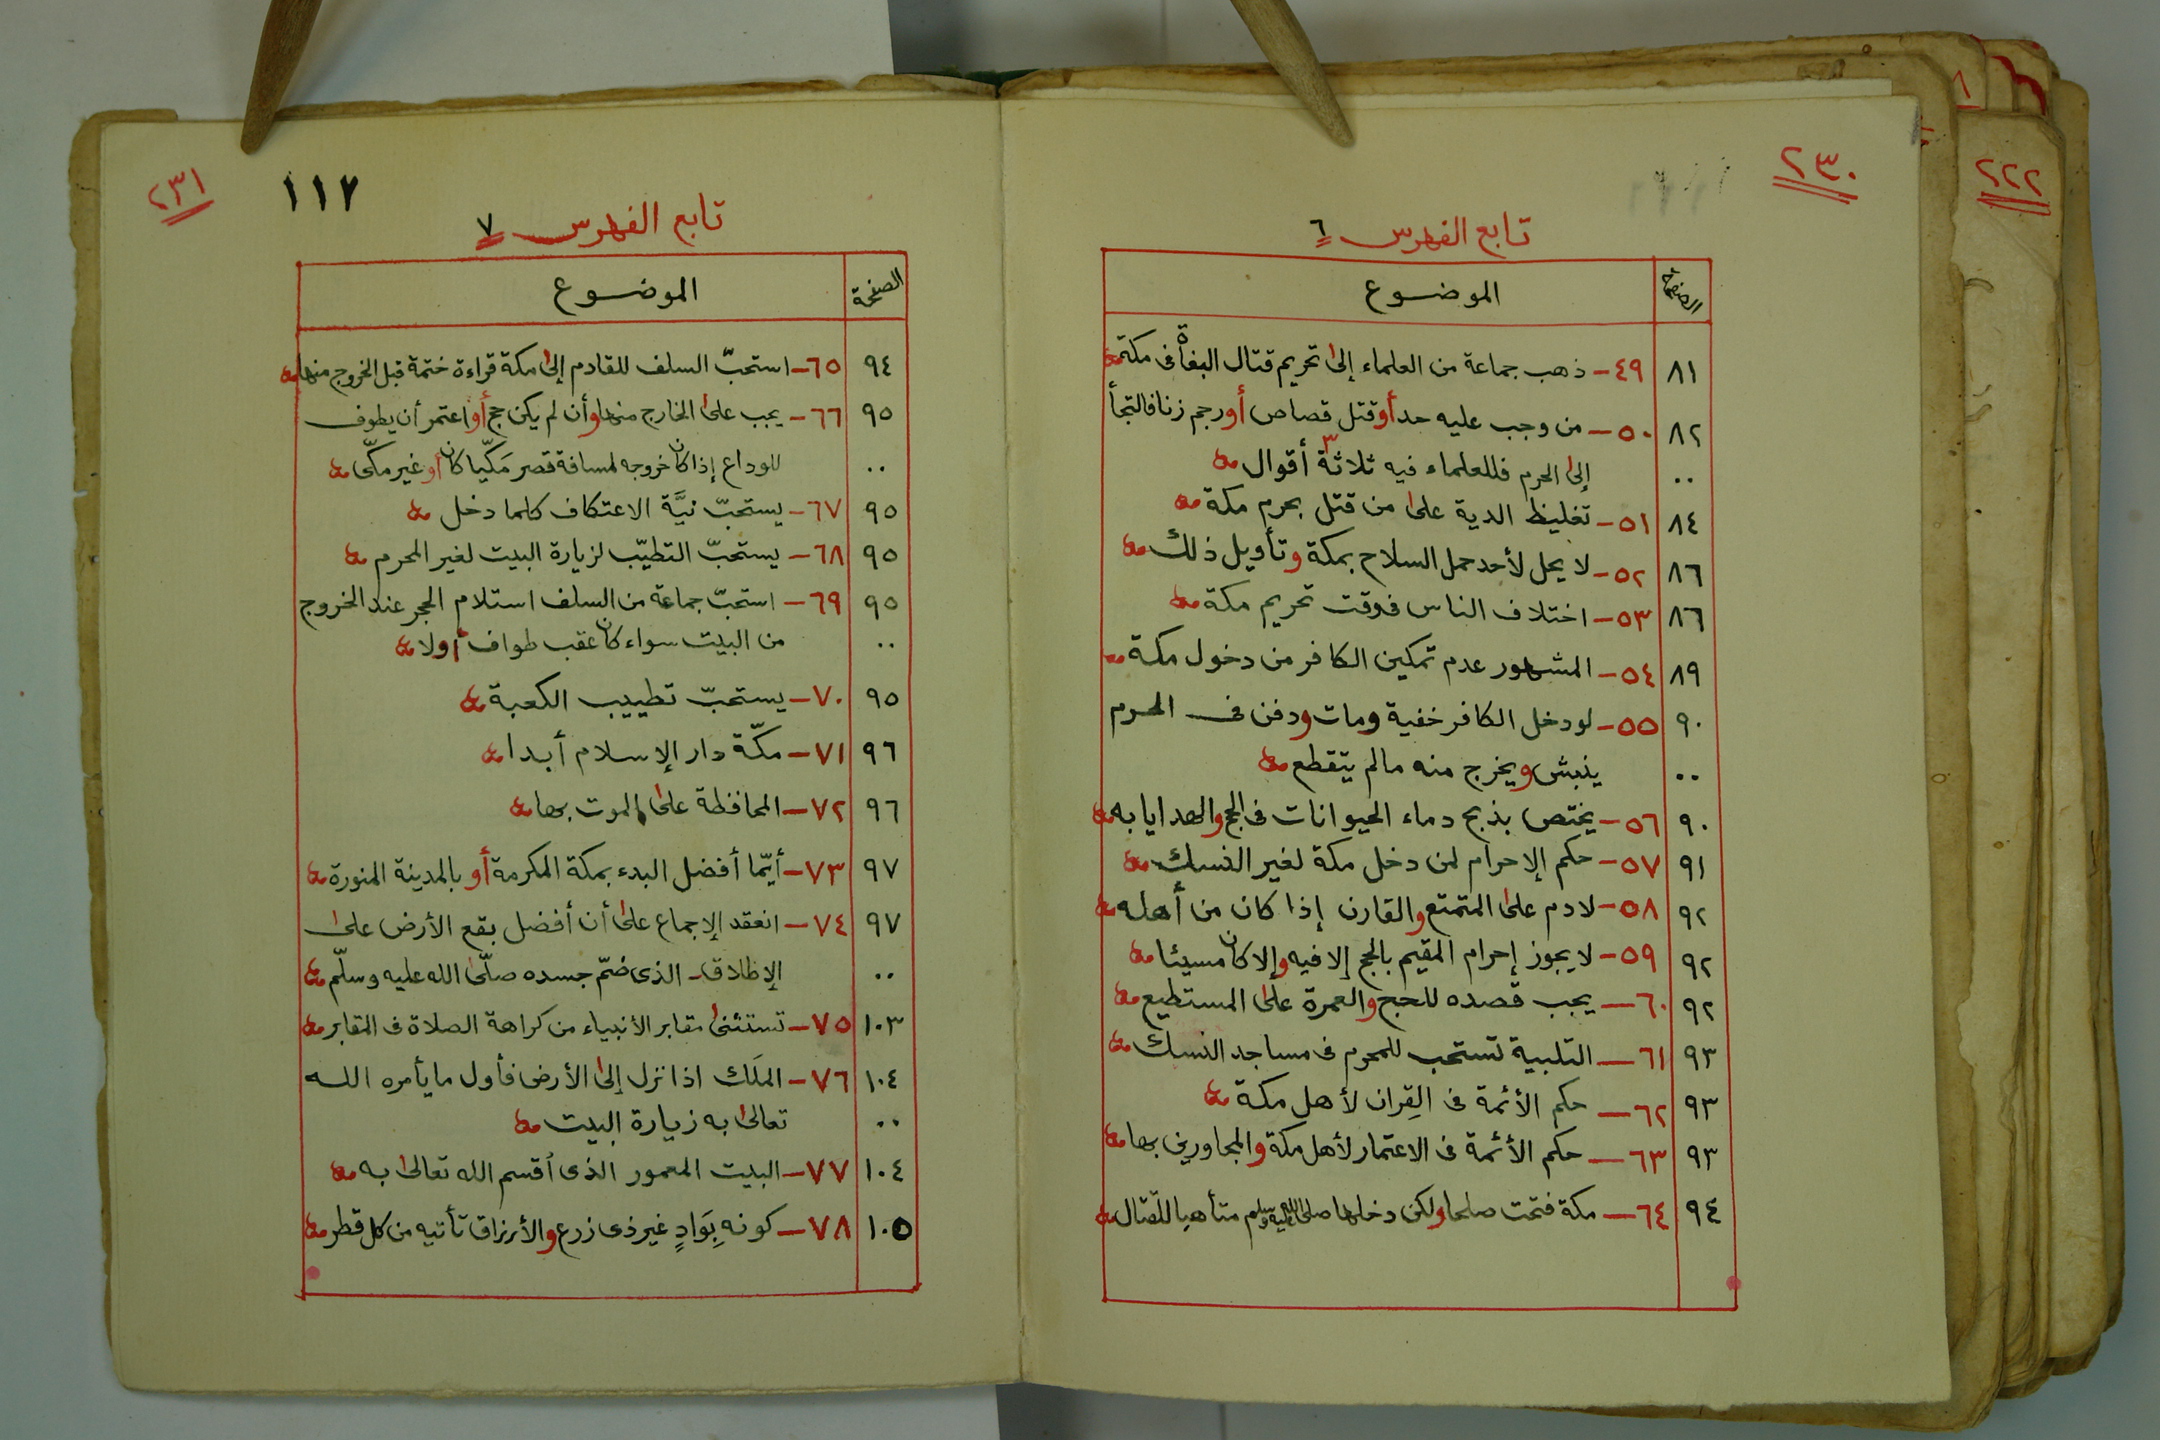 ٢٣٠
تابع الفهرس ٦
الصفحة الموضوع
٨١ ٤٩- ذهب جماعة من العلماء إلى تحريم قتال البغاة فى مكة
٨٢ ٥٠- من وجب عليه حد أو قتل قصاص أو رجم زنا فالتجأ
٠٠ إلى الحرم فللعلماء فيه ثلاثة ٣ أقوال
٨٤ ٥١- تغليظ الدية على من قتل بحرم مكة
٨٦ ٥٢- لا يحل لأحد حمل السلاح بمكة وتأويل ذلك
٨٦ ٥٣- اختلاف الناس فى وقت تحريم مكة
٨٩ ٥٤- المشهور عدم تمكين الكافر من دخول مكة
٩٠ ٥٥- لو دخل الكافر خفية ومات ودفن فى الحرم
٠٠ ينبش ويخرج منه مالم يتقطع
٩٠ ٥٦- يختص بذبح دماء الحيوانات فى الحج والهدايا به
٩١ ٥٧- حكم الإحرام لمن دخل مكة لغير النسك
٩٢ ٥٨- لا دم على المتمتع والقارن إذا كان من أهله
٩٢ ٥٩- لا يجوز إحرام المقيم بالحج إلا فيه وإلا كان مسيئا
٩٢ ٦٠- يجب قصده للحج والعمرة على المستطيع
٩٣ ٦١- التلبية تستحب للمحرم فى مساجد النسك
٩٣ ٦٢- حكم الأئمة فى القِران لأهل مكة
٩٣ ٦٣- حكم الأئمة فى الاعتمار لأهل مكة والمجاورين بها
٩٤ ٦٤- مكة فتحت صلحا ولكن دخلها صلى الله عليه وسلم متأهبا للقتال
٢٢٢
٢٣١
١١٢
تابع الفهرس ٧
الصفحة الموضوع
٩٤ ٦٥- استحبّ السلف للقادم إلى مكة قراءة ختمة قبل الخروج منها
٩٥ ٦٦- يجب على الخارج منها وأن لم يكن حج أو اعتمر أن يطوف
٠٠ للوداع إذا كان خروجه لمسافة قصر مَكّيا كان أو غير مكّى
٩٥ ٦٧- يستحبّ نيَّة الاعتكاف كلما دخل
٩٥ ٦٨- يستحبّ التطيّب لزيارة البيت لغير المحرم
٩٥ ٦٩- استحبّ جماعة من السلف استلام الحجر عند الخروج
٠٠ من البيت سواء كان عقب طواف أو لا
٩٥ ٧٠- يستحبّ تطييب الكعبة
٩٦ ٧١- مكّة دار الإسلام أبدا
٩٦ ٧٢- المحافظة على الموت بها
٩٧ ٧٣- أيّما أفضل البدء بمكة المكرمة أو بالمدينة المنورة
٩٧ ٧٤- انعقد الإجماع على أن أفضل بقع الأرض على
٠٠ الإطلاق الذى ضمّ جسده صلّى الله عليه وسلّم
١٠٣ ٧٥- تستثنى مقابر الأنبياء من كراهة الصلاة فى المقابر
١٠٤ ٧٦- الملَك اذا نزل إلى الأرض فأول ما يأمره الله
٠٠ تعالى به زيارة البيت
١٠٤ ٧٧- البيت المعمور الذى أقسم الله تعالى به
١٠٥ ٧٨- كونه بِوَادٍ غير ذى زرع والأرزاق تأتيه من كل قطر